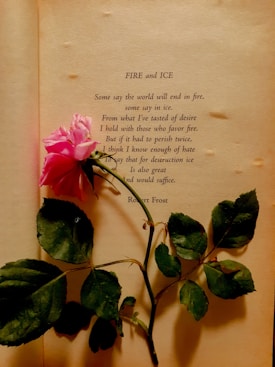 FIRE and ICE
Some say the world will end in fire,
some say in ice.
From what I've tasted of desire
I hold with those who favor fire.
But if it had to perish twice,
I think I know enough of hate
To say that for destruction ice
Is also great
And would suffice.
Robert Frost